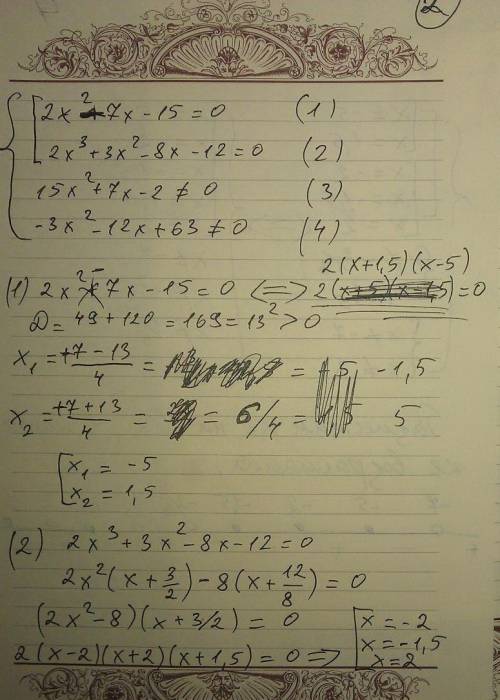 2
2x² - 7x - 15 = 0 (1)
2x³ + 3x² - 8x - 12 = 0 (2)
15x² + 7x - 2 ≠ 0 (3)
-3x² - 12x + 63 ≠ 0 (4)
2(x+1,5)(x-5)
(1) 2x² - 7x - 15 = 0 <=> 2(x+5)(x-1,5) = 0
D = 49 + 120 = 169 = 13² > 0
x₁ = +7 - 13 / 4 = = -1,5
x₂ = +7 + 13 / 4 = = 6/4 = 5
x₁ = -5
x₂ = 1,5
(2) 2x³ + 3x² - 8x - 12 = 0
2x²(x + 3/2) - 8(x + 12/8) = 0
(2x² - 8)(x + 3/2) = 0
2(x-2)(x+2)(x+1,5) = 0 =>
x = -2
x = -1,5
x = 2